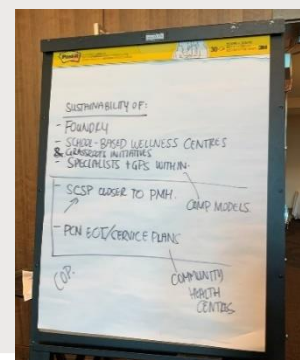 SUSTAINABILITY OF:
- FOUNDRY
- SCHOOL-BASED WELLNESS CENTRES
& GRASSROOTS INITIATIVES
- SPECIALISTS + GPS WITHIN
COMP MODELS
- SCSP CLOSER TO PMH.
- PCN EOI/SERVICE PLANS
COP.
COMMUNITY
HEALTH
CENTRES